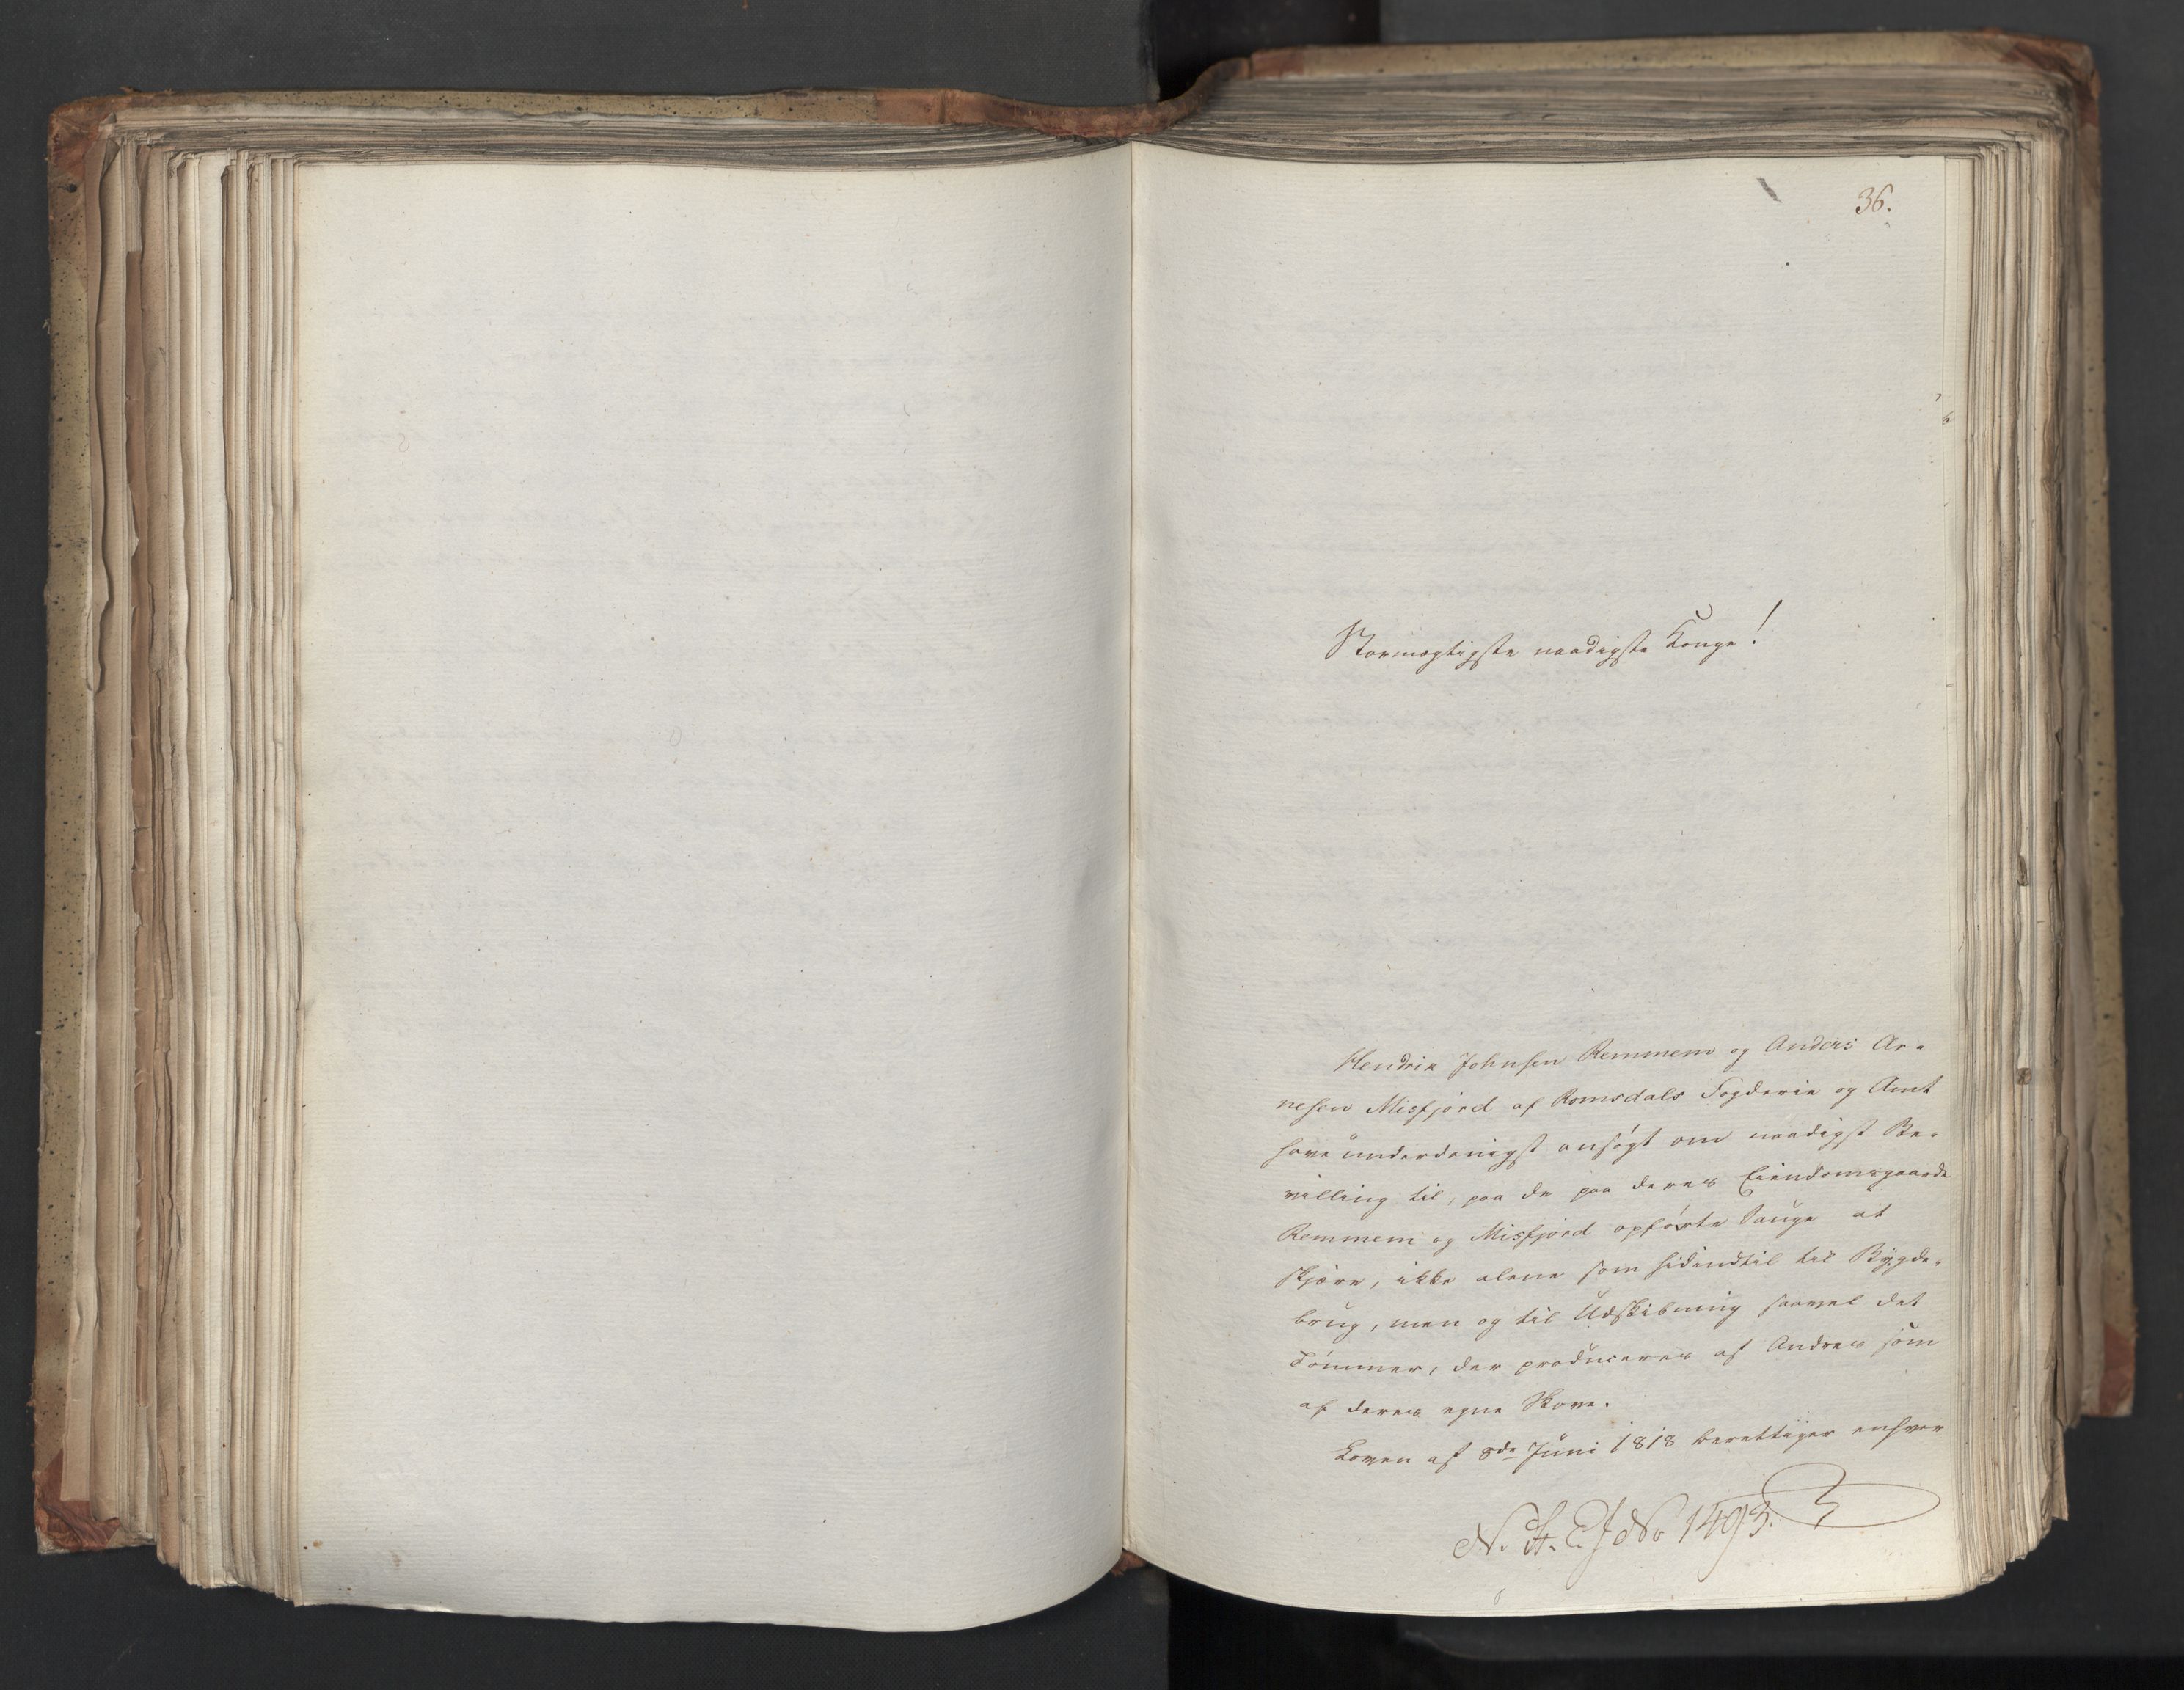 36.
Stormægtigste naadigste Konge!
Hendrik Johnsen Remmem og Anders Ar-
nesen Misfjord af Romsdals Fogderie og Amt
have underdanigst ansøgt om naadigst Be-
villing til, paa de paa deres Eiendomsgaarde
Remmem og Misfjord opførte Sauge at
skjære, ikke alene som hidindtil til Bygde-
brug, men og til Udskibning saavel det
Tømmer, der produceres af Andres som
af deres egne Skove.
Loven af 8de Juni 1818 berettiger enhver
No 1493.